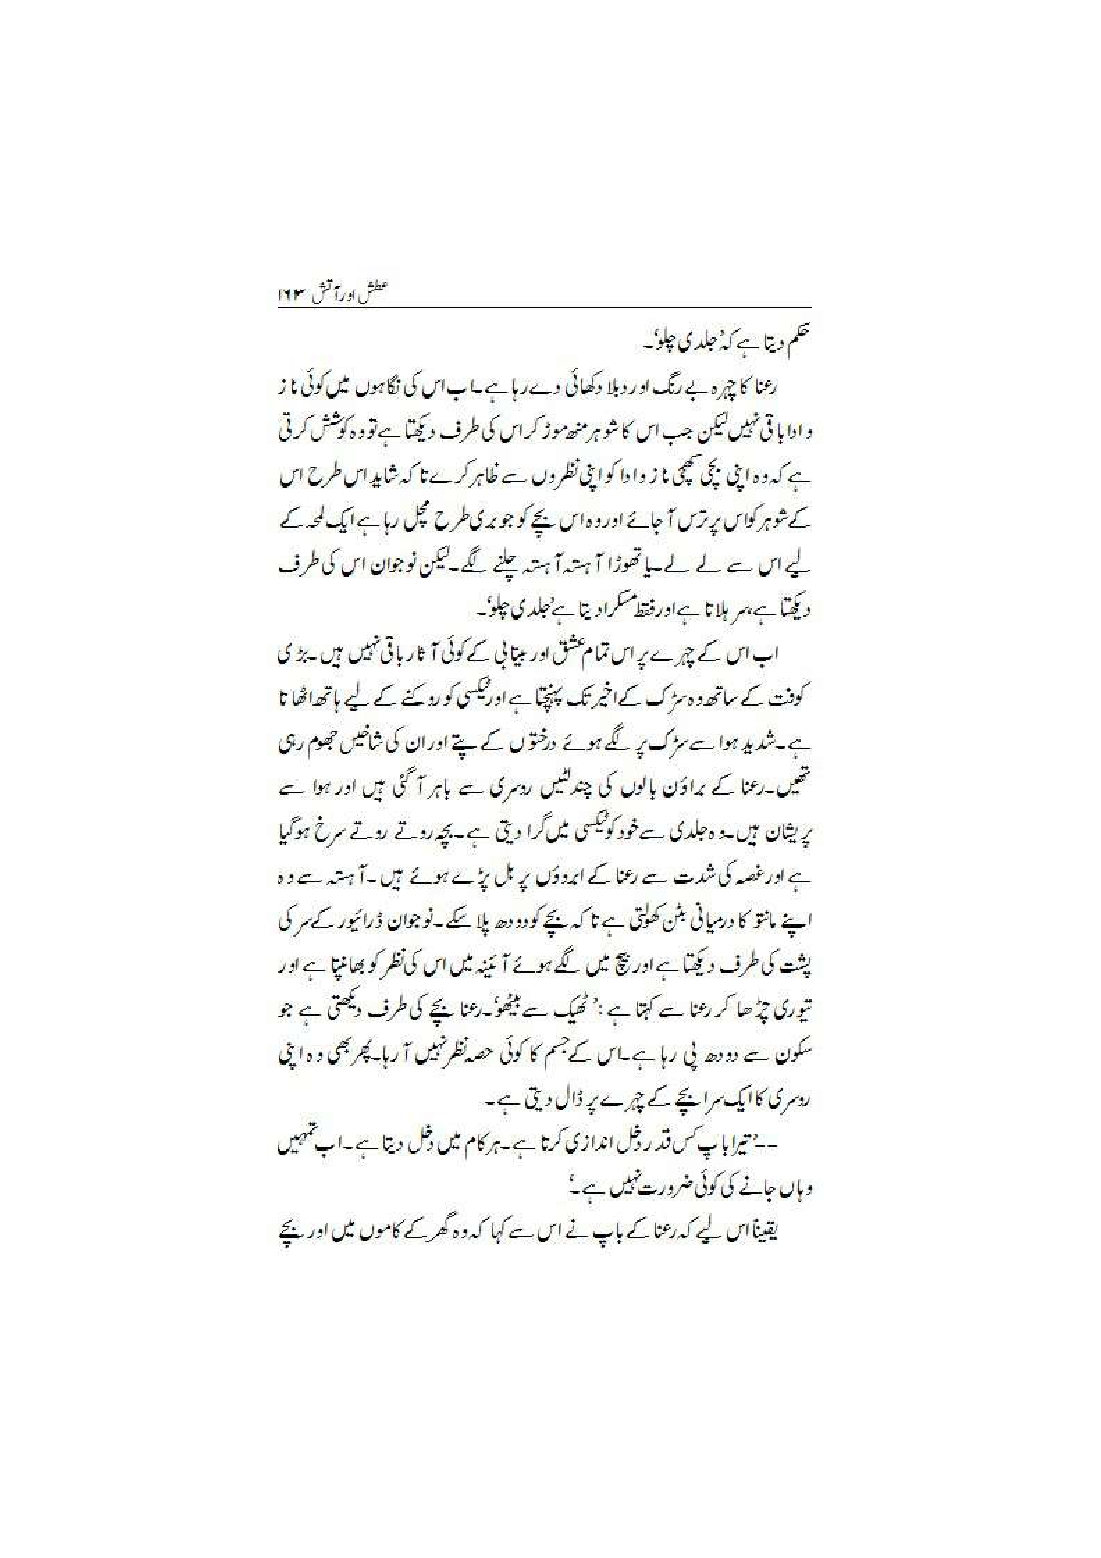 عطش اور آتش ۱۶۳
حکم دیتا ہے کہ’جلدی چلو‘۔
رعنا کا چہرہ بے رنگ اور دبلا دکھائی دے رہا ہے۔اب اس کی نگاہوں میں کوئی ناز
و ادا باقی نہیں لیکن جب اس کا شوہر منھ موڑ کر اس کی طرف دیکھتا ہے تو وہ کوشش کرتی
ہے کہ وہ اپنی بچی کھچی ناز و ادا کو اپنی نظروں سے ظاہر کرے تا کہ شاید اس طرح اس
کے شوہر کو اس پر ترس آ جائے اور وہ اس بچے کو جو بری طرح مچل رہا ہے ایک لمحہ کے
لیے اس سے لے لے۔یا تھوڑا آہستہ آہستہ چلنے لگے۔لیکن نوجوان اس کی طرف
دیکھتا ہے،سر ہلاتا ہے اور فقط مسکرا دیتا ہے’جلدی چلو‘۔
اب اس کے چہرے پر اس تمام عشق اور بیتابی کے کوئی آثار باقی نہیں ہیں۔بڑی
کوفت کے ساتھ وہ سڑک کے اخیر تک پہنچتا ہے اور ٹیکسی کو روکنے کے لیے ہاتھ اٹھاتا
ہے۔شدید ہوا سے سڑک پر لگے ہوئے درختوں کے پتے اور ان کی شاخیں جھوم رہی
تھیں۔رعنا کے براؤن بالوں کی چند لٹیں روسری سے باہر آ گئی ہیں اور ہوا سے
پریشان ہیں۔وہ جلدی سے خود کو ٹیکسی میں گرا دیتی ہے۔بچہ روتے روتے سرخ ہوگیا
ہے اور غصہ کی شدت سے رعنا کے ابروؤں پر بل پڑے ہوئے ہیں۔آہستہ سے وہ
اپنے مانتو کا درمیانی بٹن کھولتی ہے تا کہ بچے کو دودھ پلا سکے۔نوجوان ڈرائیور کے سر کی
پشت کی طرف دیکھتا ہے اور بیچ میں لگے ہوئے آئینہ میں اس کی نظر کو بھانپتا ہے اور
تیوری چڑھا کر رعنا سے کہتا ہے :’ ٹھیک سے بیٹھو‘۔رعنا بچے کی طرف دیکھتی ہے جو
سکون سے دودھ پی رہا ہے۔اس کے جسم کا کوئی حصہ نظر نہیں آ رہا۔پھر بھی وہ اپنی
روسری کا ایک سرا بچے کے چہرے پر ڈال دیتی ہے۔
--’تیرا باپ کس قدر دخل اندازی کرتا ہے۔ہر کام میں دخل دیتا ہے۔اب تمہیں
وہاں جانے کی کوئی ضرورت نہیں ہے۔‘
یقیناً اس لیے کہ رعنا کے باپ نے اس سے کہا کہ وہ گھر کے کاموں میں اور بچے